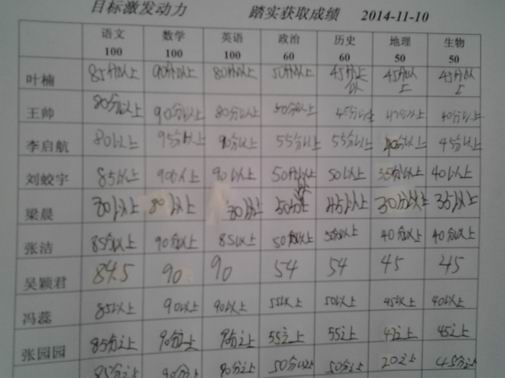 目标激发动力 踏实获取成绩 2014-11-10
语文 数学 英语 政治 历史 地理 生物
100 100 100 60 60 50 50
叶楠 85分以上 90分以上 80分以上 50分以上 45分以上 45分以上 45分以上
王帅 80分以上 90分以上 80分以上 50分以上 45分以上 40分以上
李启航 80以上 95分以上 90分以上 55分以上 55分以上 40分以上 45分以上
刘蛟宇 85以上 90以上 90以上 50分以上 50以上 35分以上 40以上
梁晨 30以上 80以上 30以上 50分以上 45以上 30分以上 35以上
张洁 85分以上 90分以上 85以上 50分以上 40分以上 40分以上
吴颖君 84.5 90 90 54 54 45 45
冯蕊 85以上 90以上 90以上 55以上 50以上 45以上 40以上
张园园 85分以上 90分以上 55以上 55以上 45以上
90分以上 80分以上 50分以上 50分以上 20以上 45分以上